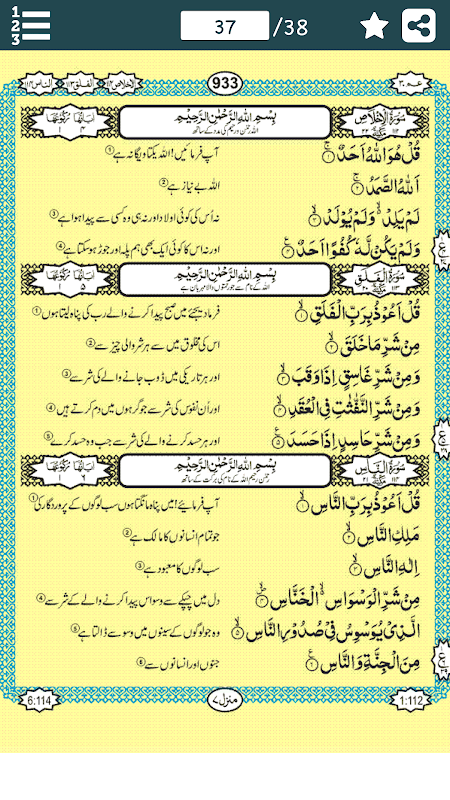 1 2 3
37 /38
عـم ٣٠ 933 الاخلاص ١١٢ الفلق ١١٣ الناس ١١٤
سُوْرَةُ الْاِخْلَاصِ بِسْمِ اللّٰهِ الرَّحْمٰنِ الرَّحِيْمِ اٰيَاتُهَا ٤ رُكُوْعُهَا ١
قُلْ هُوَ اللّٰهُ اَحَدٌ ۚ﴿۱﴾ آپ فرمائیں! اللہ یکتا ویگانہ ہے ①
اَللّٰهُ الصَّمَدُ ۚ﴿۲﴾ اللہ بے نیاز ہے ②
لَمْ يَلِدْ ۙ وَلَمْ يُوْلَدْ ۙ﴿۳﴾ نہ اُس کی کوئی اولاد اور نہ ہی وہ کسی سے پیدا ہوا ہے ③
وَلَمْ يَكُنْ لَّهٗ كُفُوًا اَحَدٌ ﴿۴﴾ اور نہ اس کا کوئی ایک بھی ہم پلہ اور جوڑ ہوسکتا ہے ④
سُوْرَةُ الْفَلَقِ بِسْمِ اللّٰهِ الرَّحْمٰنِ الرَّحِيْمِ اٰيَاتُهَا ٥ رُكُوْعُهَا ١
اللہ کے نام سے جو رحمتوں والا مہربان ہے
قُلْ اَعُوْذُ بِرَبِّ الْفَلَقِ ۙ﴿۱﴾ فرما دیجئے میں صبح پیدا کرنے والے رب کی پناہ لیتا ہوں ①
مِنْ شَرِّ مَا خَلَقَ ۙ﴿۲﴾ اس کی مخلوق میں سے ہر شر والی چیز سے ②
وَمِنْ شَرِّ غَاسِقٍ اِذَا وَقَبَ ۙ﴿۳﴾ اور ہر تاریکی میں ڈوب جانے والے کی شر سے ③
وَمِنْ شَرِّ النَّفّٰثٰتِ فِی الْعُقَدِ ۙ﴿۴﴾ اور اُن نفوس کی شر سے جو گرہوں میں دم کرتے ہیں ④
وَمِنْ شَرِّ حَاسِدٍ اِذَا حَسَدَ ﴿۵﴾ اور ہر حسد کرنے والے کی شر سے جب وہ حسد کرے ⑤
سُوْرَةُ النَّاسِ بِسْمِ اللّٰهِ الرَّحْمٰنِ الرَّحِيْمِ اٰيَاتُهَا ٦ رُكُوْعُهَا ١
رحمٰن رحیم اللہ کے نام کی برکت کے ساتھ
قُلْ اَعُوْذُ بِرَبِّ النَّاسِ ۙ﴿۱﴾ آپ فرمایئے! میں پناہ مانگتا ہوں سب لوگوں کے پروردگار کی ①
مَلِكِ النَّاسِ ۙ﴿۲﴾ جو تمام انسانوں کا مالک ہے ②
اِلٰهِ النَّاسِ ۙ﴿۳﴾ سب لوگوں کا معبود ہے ③
مِنْ شَرِّ الْوَسْوَاسِ ۙ الْخَنَّاسِ ۙ﴿۴﴾ دل میں چپکے سے وسواس پیدا کرنے والے کے شر سے ④
الَّذِیْ يُوَسْوِسُ فِیْ صُدُوْرِ النَّاسِ ۙ﴿۵﴾ وہ جو لوگوں کے سینوں میں وسوسے ڈالتا ہے ⑤
مِنَ الْجِنَّةِ وَالنَّاسِ ﴿۶﴾ جنوں اور انسانوں سے ⑥
1:112 منزل ٧ 6:114